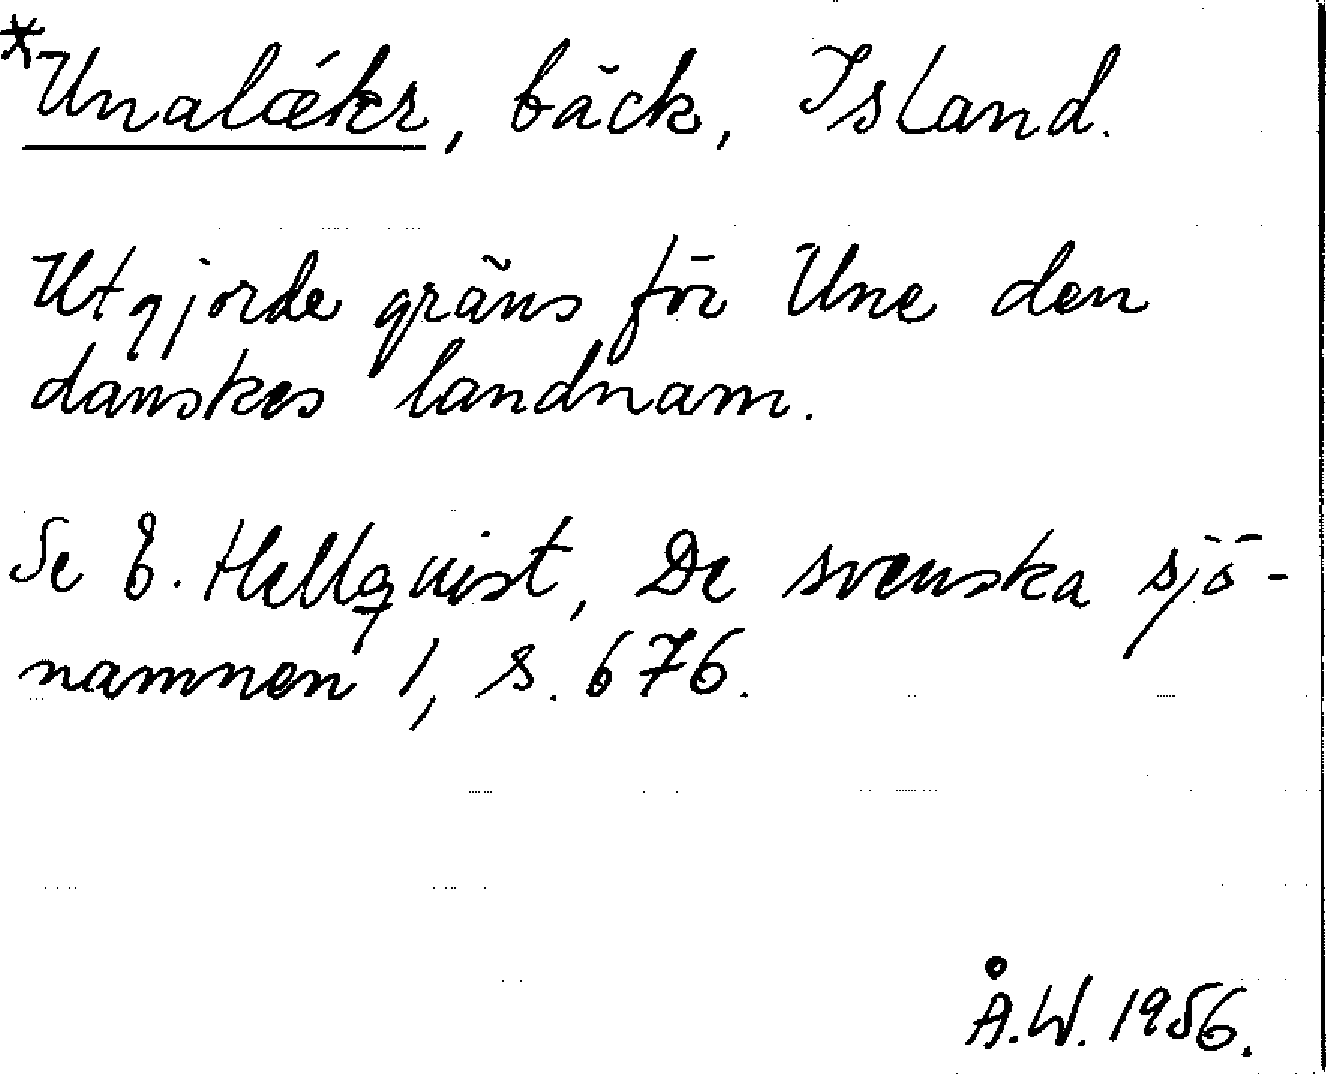 *Unalǽkr, bäck, Island.
Utgjorde gräns för Une den
danskes landnam.
Se E. Hellquist, De svenska sjö-
namnen 1, s. 676.
Å.W. 1956.